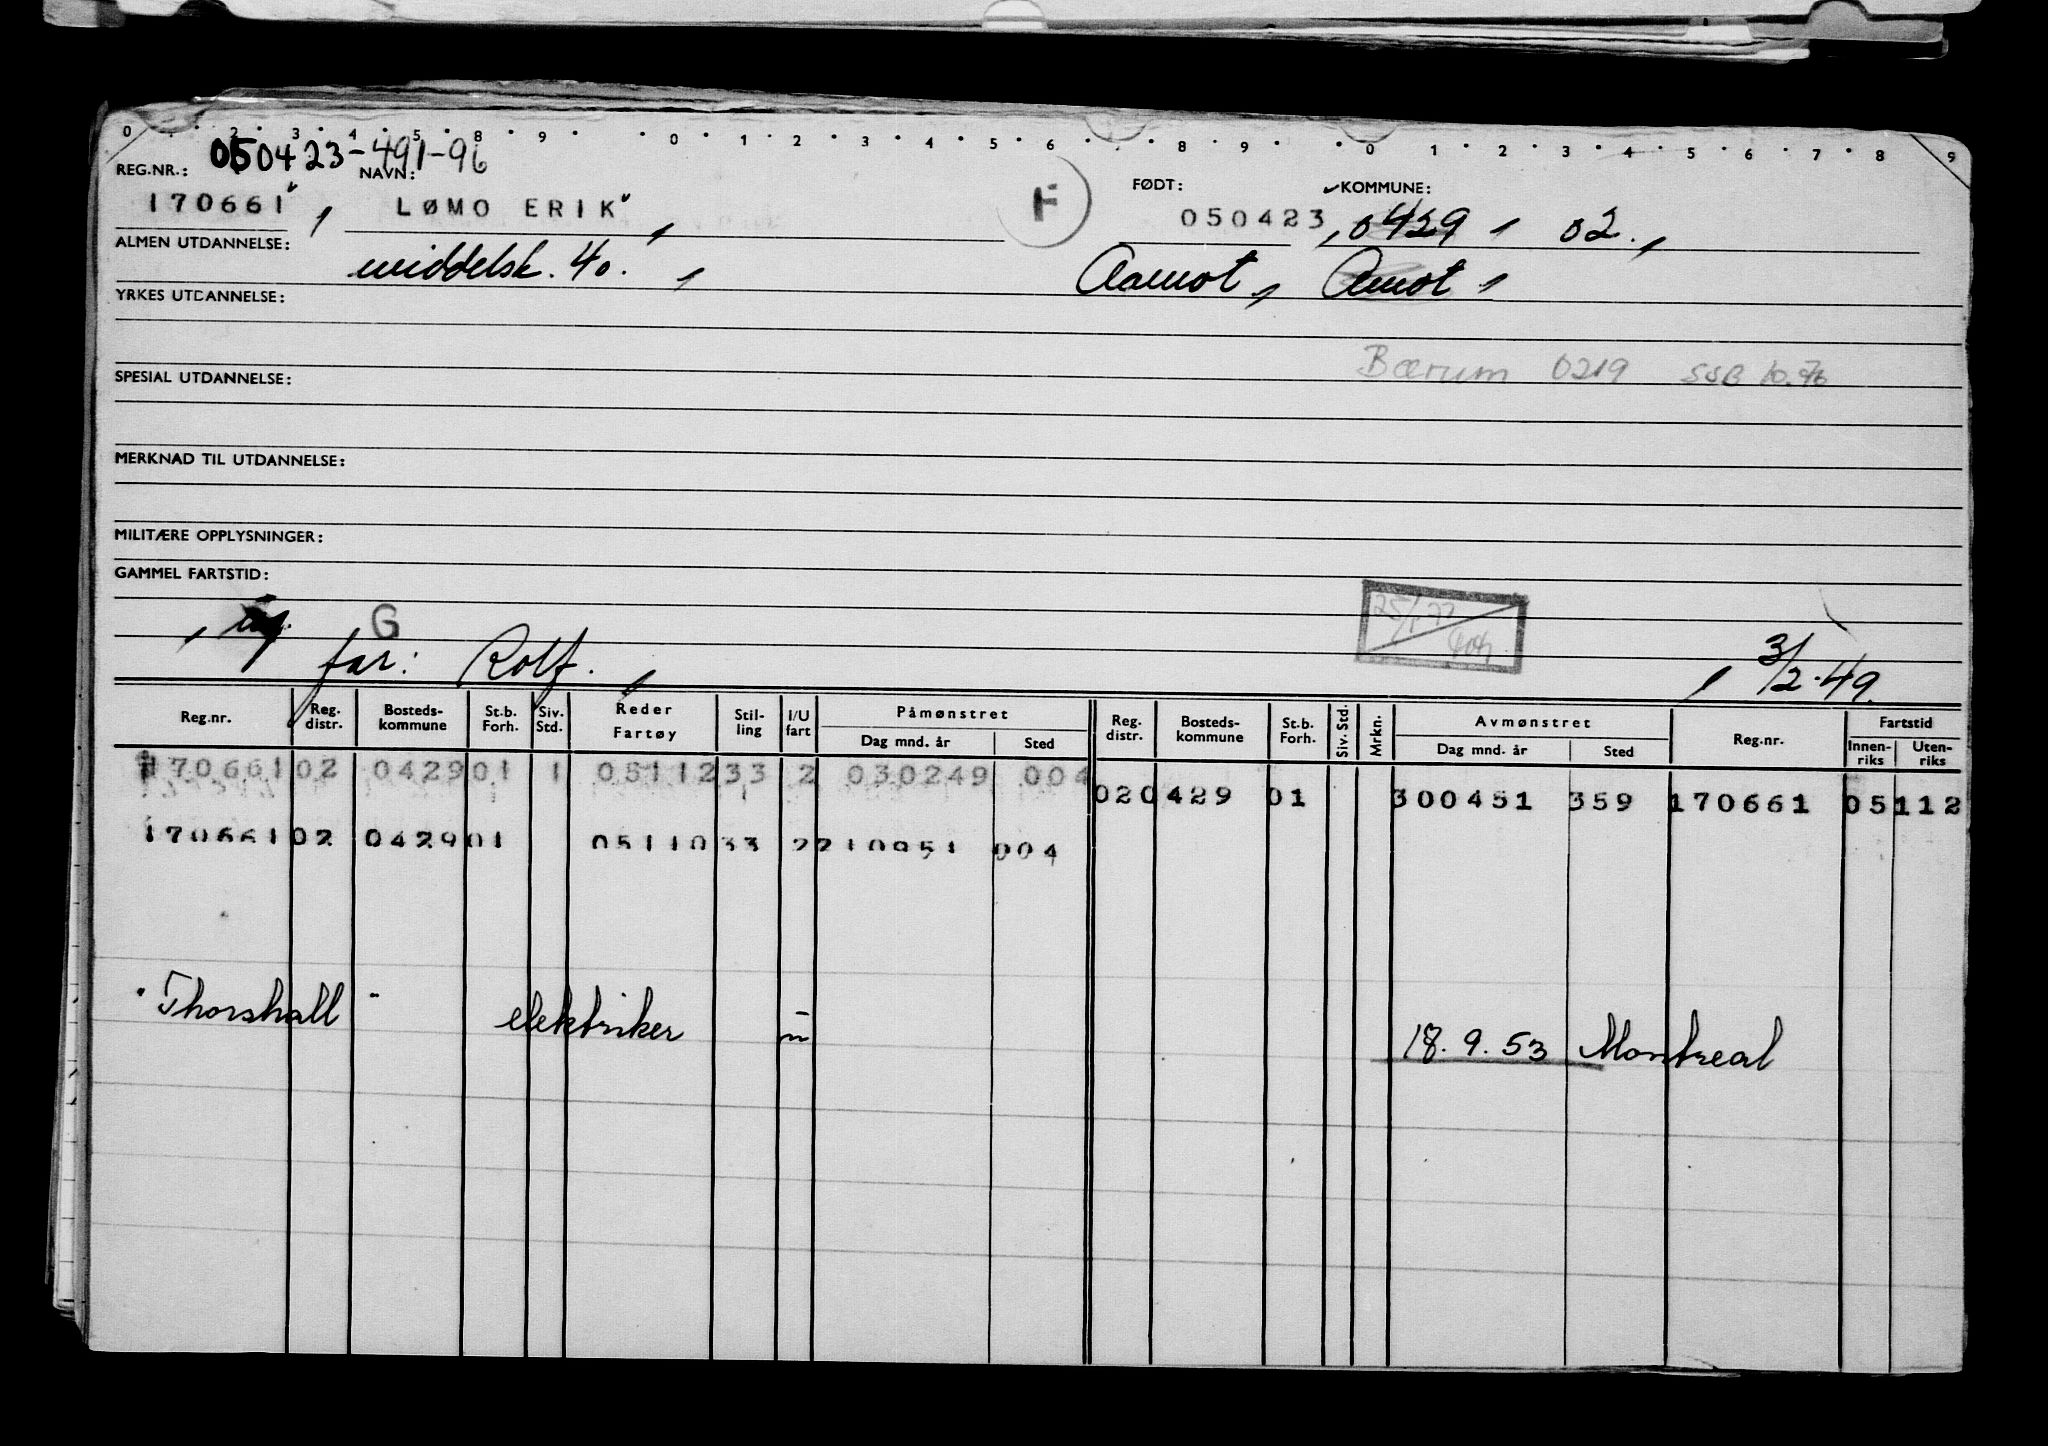 0 · 2 · 3 · 4 · 5 · 8 · 9 · · 0 · 1 · 2 · 3 · 4 · 5 · 6 · · 8 · 9 · · 0 · 1 · 2 · 3 · 4 · 5 · 6 · 7 · 8 · 9
REG.NR.: 050423-491-96 NAVN: FØDT: KOMMUNE:
170661, LØMO ERIK, F 050423, 0429, 02.,
ALMEN UTDANNELSE: middelsk. 40., Aamot, Åmot,
YRKES UTDANNELSE:
Bærum 0219 SSB 10.76
SPESIAL UTDANNELSE:
MERKNAD TIL UTDANNELSE:
MILITÆRE OPPLYSNINGER:
GAMMEL FARTSTID:
G
far: Rolf., , 3/2-49.
Reg.nr. Reg. distr. Bosteds-kommune St.b. Forh. Siv. Std. Reder Fartøy Stil-ling I/U fart Påmønstret Dag mnd. år Sted Reg. distr. Bosteds-kommune St.b. Forh. Siv. Std. Mrkn. Avmønstret Dag mnd. år Sted Reg.nr. Fartstid Innen-riks Uten-riks
170661 02 0429 01 1 05112 33 2 030249 004
02 0429 01 300451 359 170661 05112
170661 02 0429 01 05110 33 2 210951 004
"Thorshall" elektriker u 18.9.53 Montreal